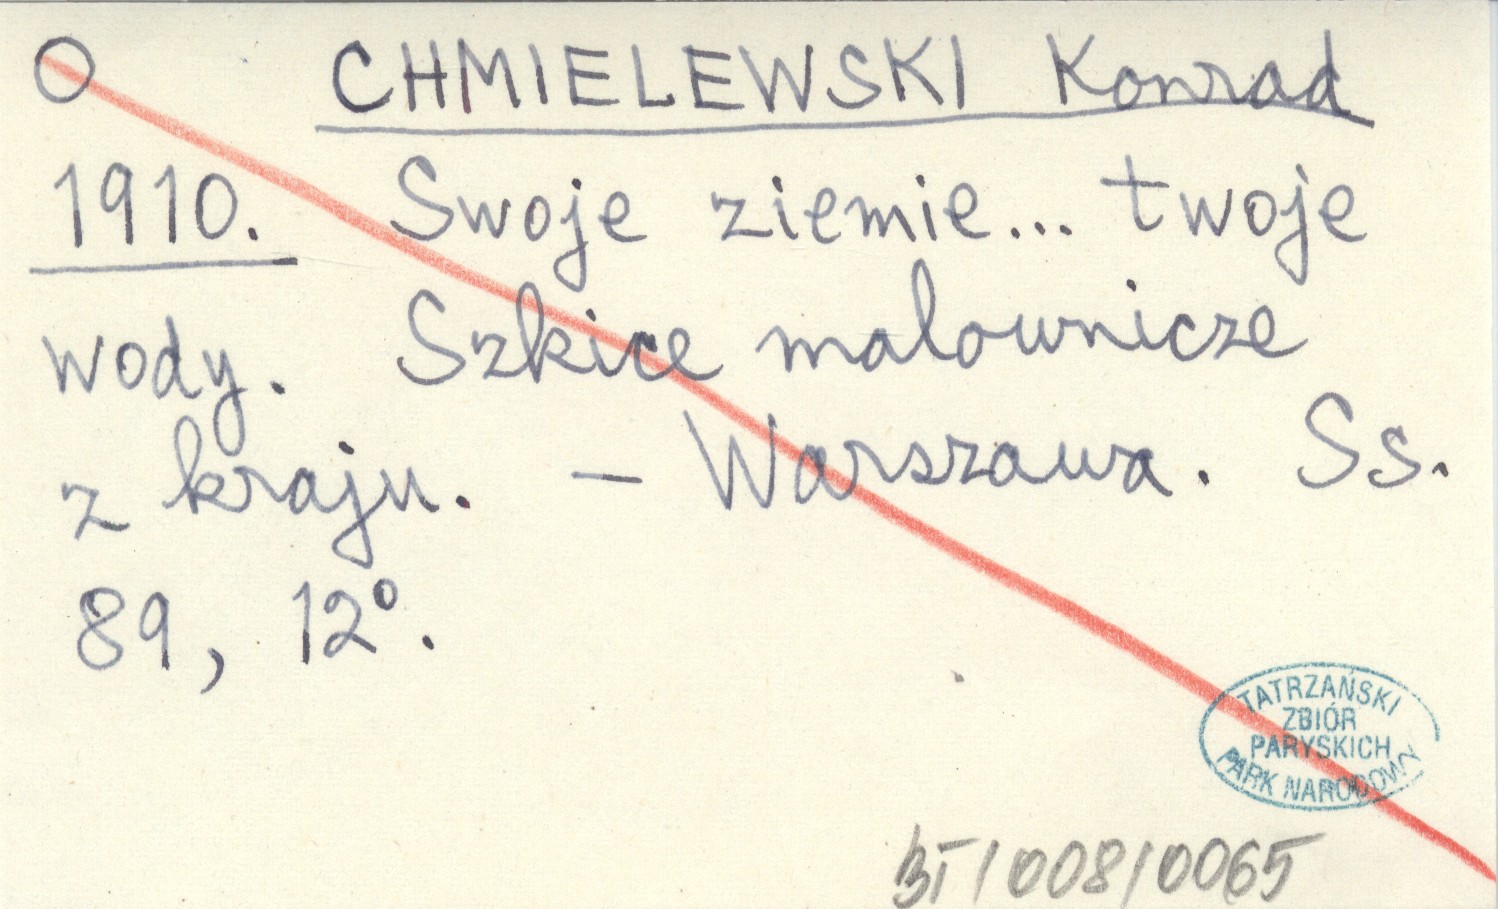 O CHMIELEWSKI Konrad
1910. Swoje ziemie... twoje
wody. Szkice malownicze
z kraju. — Warszawa. Ss.
89, 12°.
TATRZAŃSKI
ZBIÓR
PARYSKICH
PARK NARODOWY
BT/008/0065